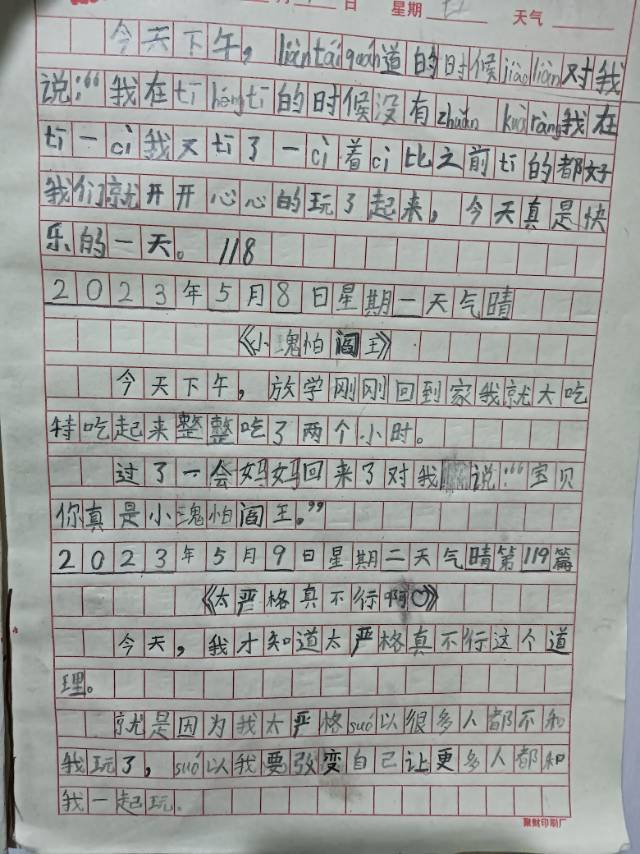 日 星期 天气
今天下午，liàn tái quán道的时候jiào liàn对我
说：“我在tī hóng tī的时候没有zhuǎn kuà ràng我在
tī一cì我又tī了一cì着cì比之前tī的都好
我们就开开心心的玩了起来，今天真是快
乐的一天。118
2023年5月8日星期一天气晴
《小瑰怕阎王》
今天下午，放学刚刚回到家我就大吃
特吃起来整整吃了两个小时。
过了一会妈妈回来了对我说：“宝贝
你真是小瑰怕阎王。”
2023年5月9日星期二天气晴第119篇
《太严格真不行啊♡》
今天，我才知道太严格真不行这个道
理。
就是因为我太严格suó以很多人都不和
我玩了，suó以我要改变自己让更多人都和
我一起玩.
聚财印刷厂